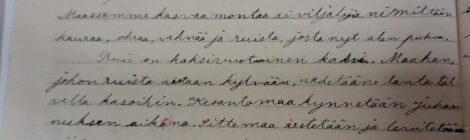 Maassamme kasvaa montaa eri viljalajia nimittäin
kauraa, ohraa, vehnää ja ruista, josta nyt alan puhua.
Ruis on kaksivuotinen kasvi. Maahan,
johon ruista aiotaan kylvään, vedetään lanta tal-
vella kasoihin. Kesantomaa kynnetään Juhan-
nuksen aikana. Sitte maa äestetään ja levitetään